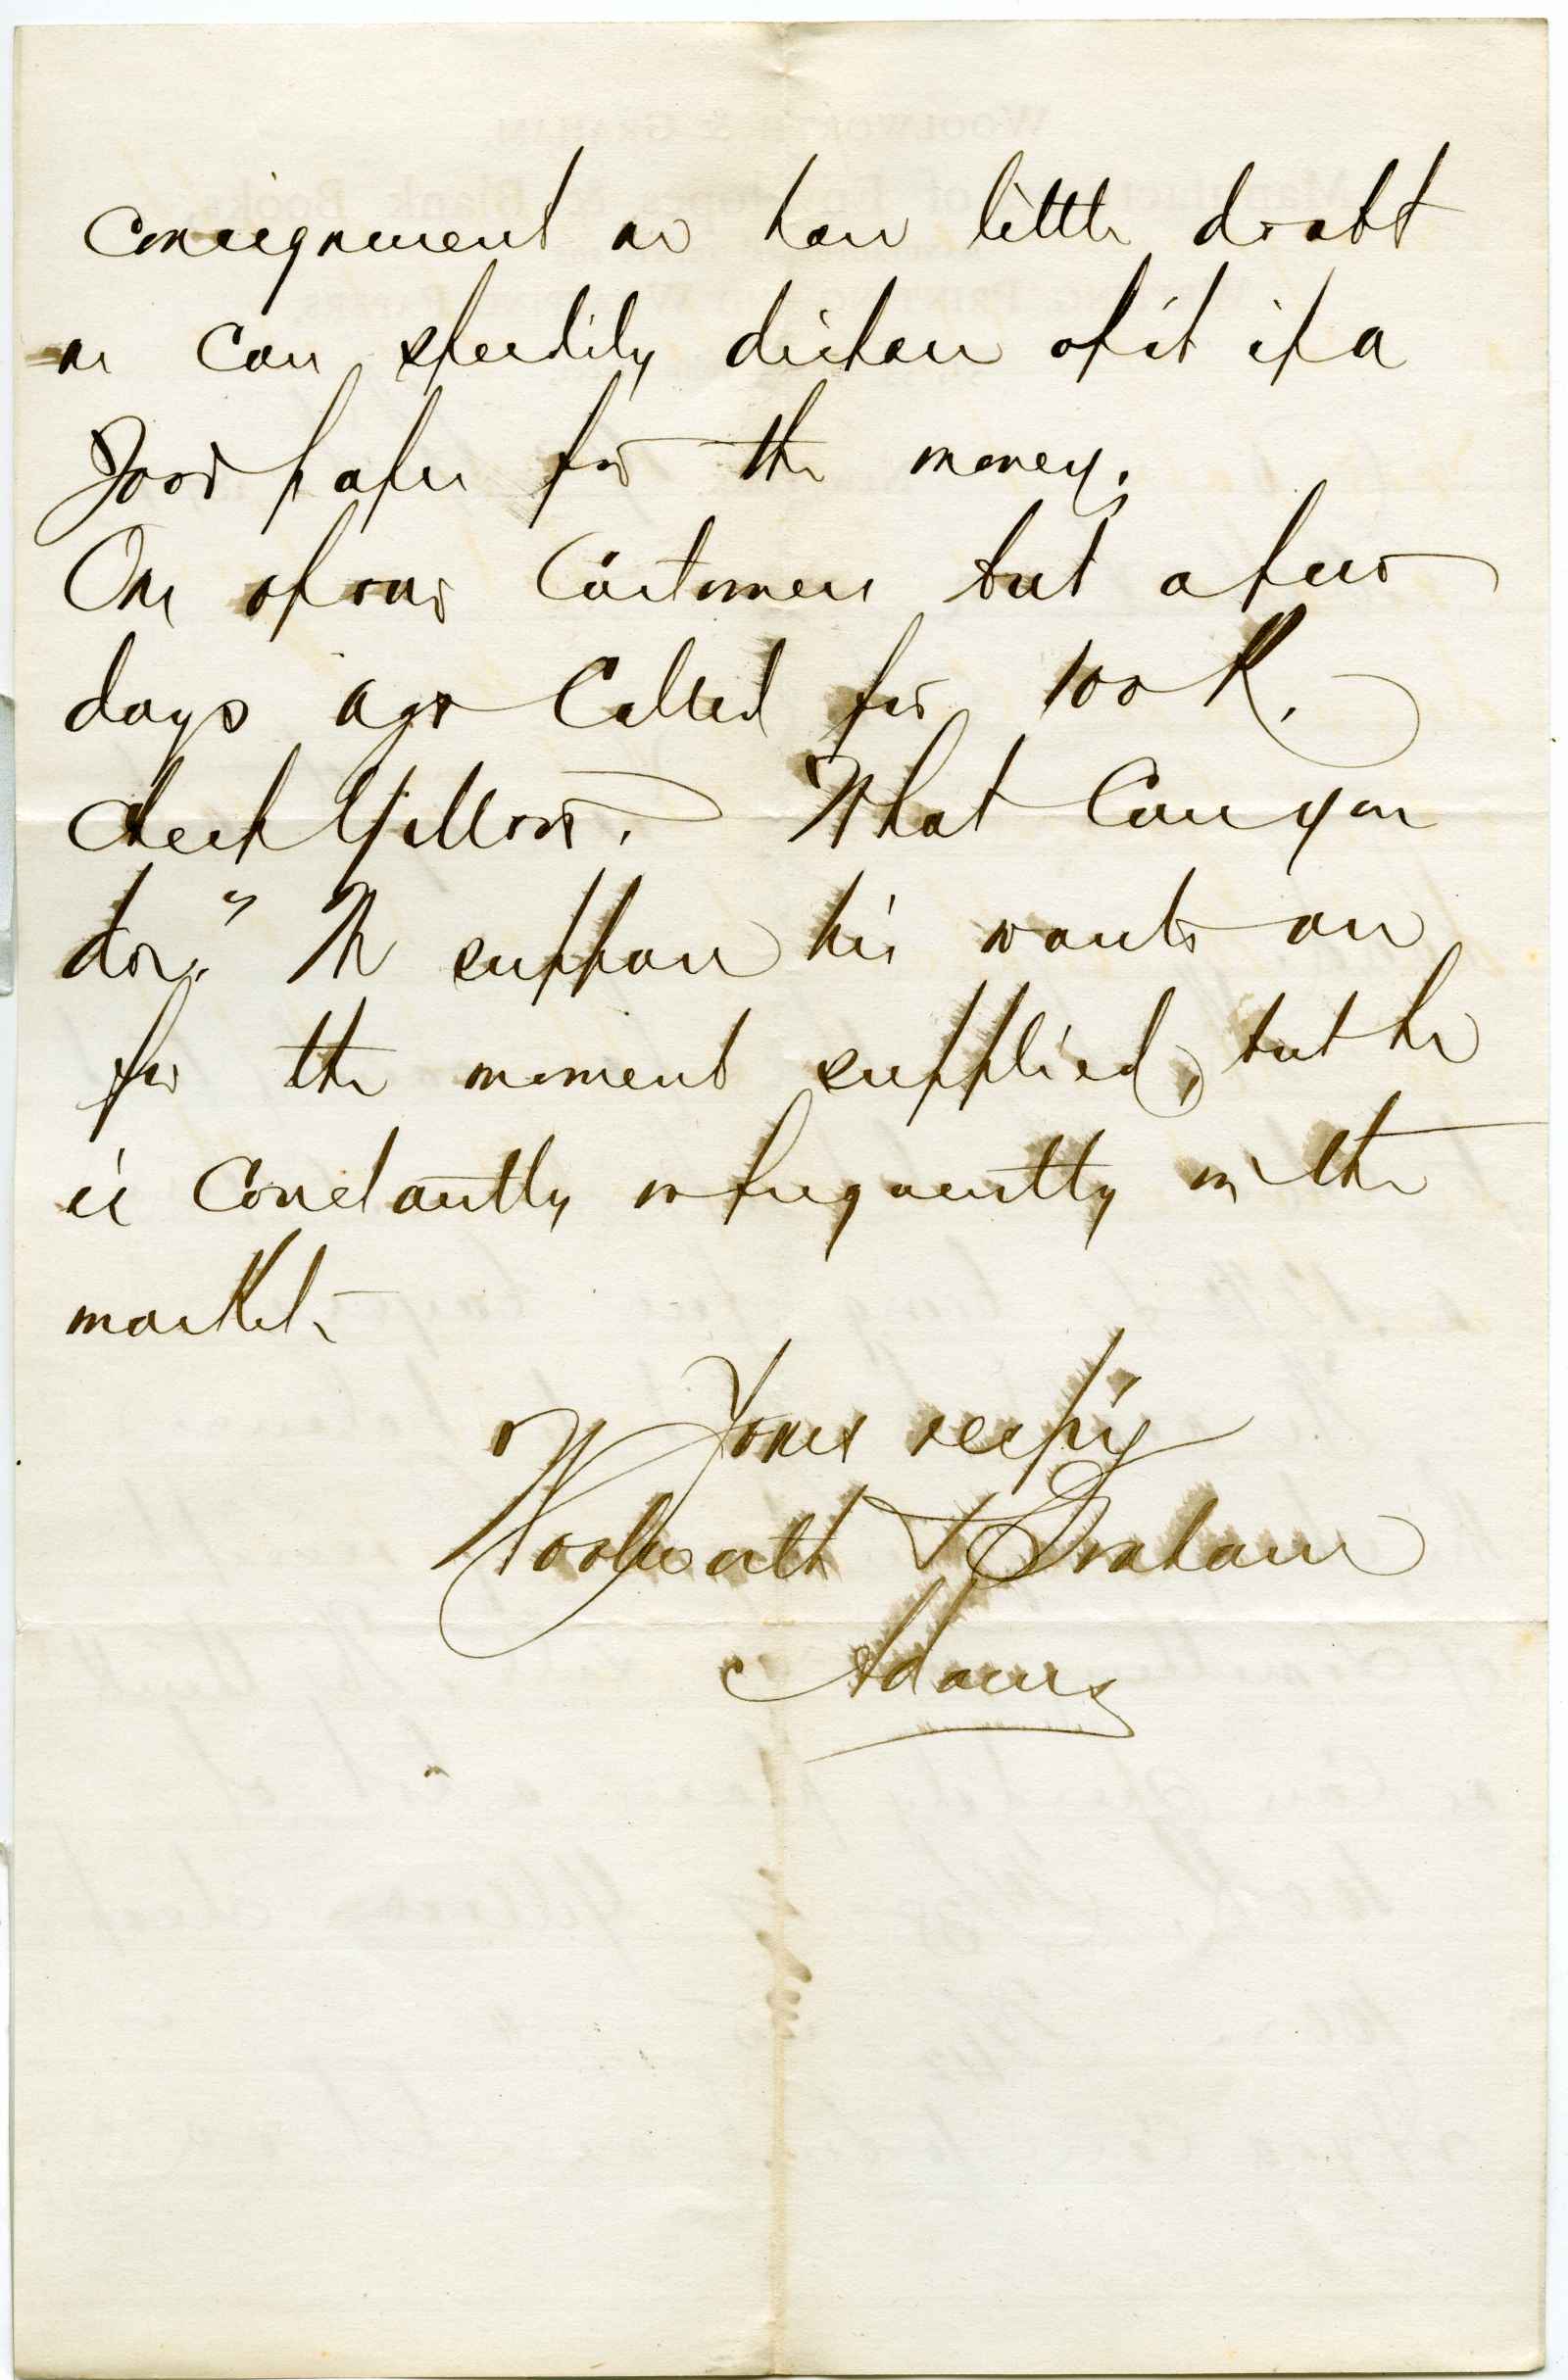 consignment we have little doubt
we can speedily dispose of it if a
good paper for the money.
One of our customers but a few
days ago called for 100 R.
check yellow. What can you
do." We suppose his wants are
for the moment supplied, but he
is constantly or frequently in the
market.
Yours respy
Woolworth & Graham
Adams
WOOLWORTH & GRAHAM